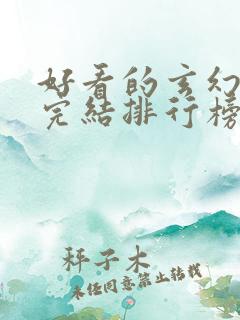 好看的玄幻
完结排行榜
秤子木
未经同意禁止转载